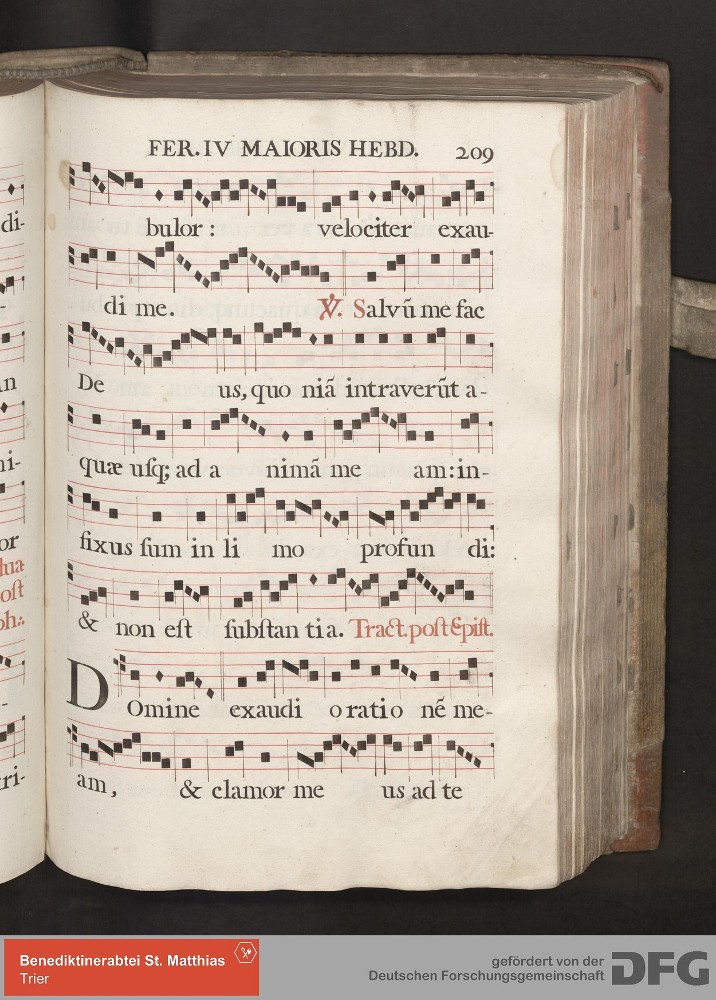 FER. IV MAIORIS HEBD. 209
bulor : velociter exau-
di me. ℣. Salvū me fac
De us, quo niā intraverūt a-
quæ uſq; ad a nimā me am: in-
fixus ſum in li mo profun di:
& non eſt ſubſtan tia. Tract. poſt Epiſt.
Domine exaudi oratio nē me-
am, & clamor me us ad te
di-
an
ni-
or
oſt
ph:.
tri-
Benediktinerabtei St. Matthias
Trier
gefördert von der
Deutschen Forschungsgemeinschaft
DFG